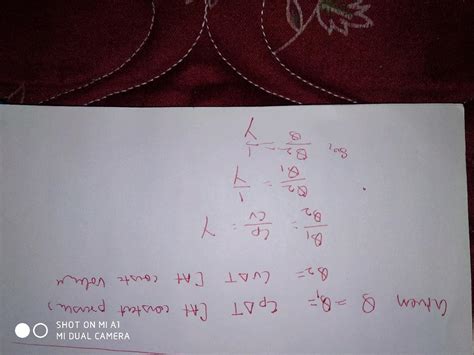 Given Q = Q₁ = CpΔT [At constat pressure)
Q₂ = CvΔT [At const volume
Q₁/Q₂ = Cp/Cv = γ
Q₂/Q₁ = 1/γ
So, Q₂/Q = 1/γ
SHOT ON MI A1
MI DUAL CAMERA